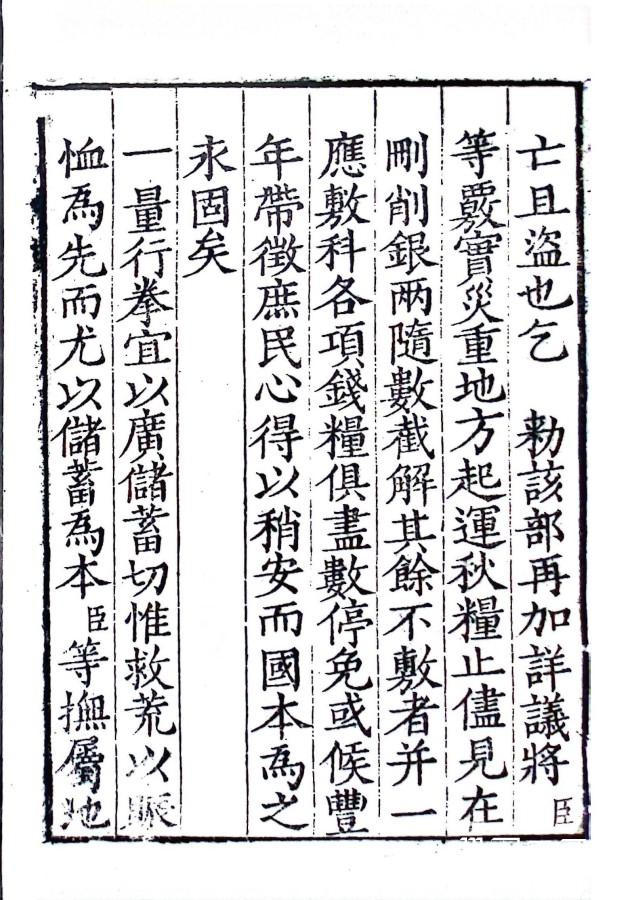 亡且盜也乞　勑該部再加詳議將臣
等覈實災重地方起運秋糧止儘見在
刪削銀兩隨數截解其餘不敷者并一
應敷科各項錢糧俱盡數停免或候豐
年帶徵庶民心得以稍安而國本為之
永固矣
一量行拳宜以廣儲蓄切惟救荒以賑
恤為先而尤以儲蓄為本臣等撫屬地